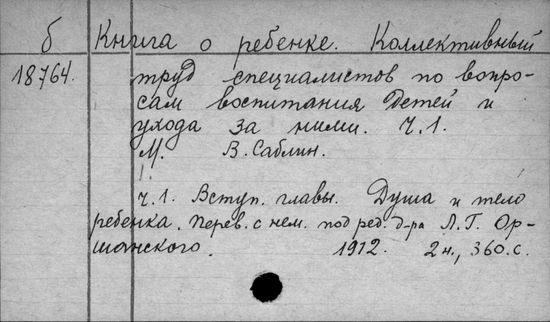 б Книга о ребенке. Коллективный
18764. труд специалистов по вопро-
сам воспитания детей и
ухода за ними. Ч.1.
М. В. Саблин.
Ч.1. Вступ. главы. Душа и тело
ребенка. Перев. с нем. под ред. д-ра Л.Г. Ор-
шанского. 1912. 2н., 360.с.